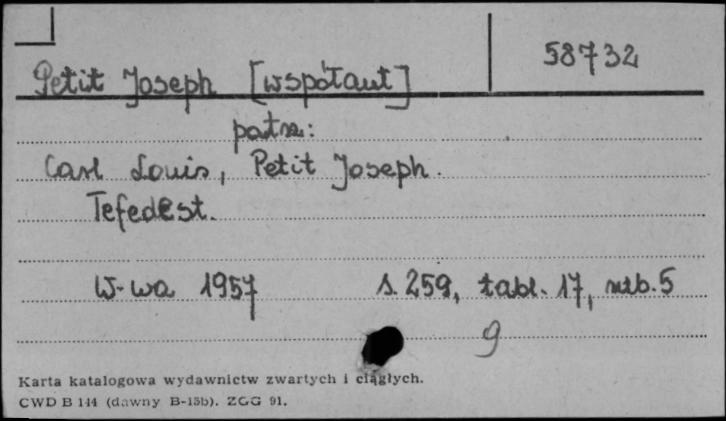 58732
Petit Joseph [współaut]
patrz:
Carl Louis, Petit Joseph.
Tefedest.
W-wa 1957 s. 259, tabl. 17, nlb. 5
9
Karta katalogowa wydawnictw zwartych i ciągłych.
CWD B 144 (dawny B-15b). ZGG 91.